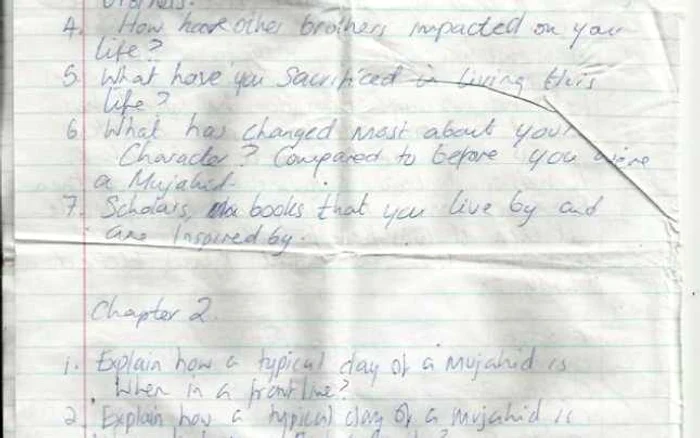 brothers.
4. How have other brothers impacted on your
life?
5. What have you Sacrificed in living this
life?
6. What has changed most about your
Character? Compared to before you were
a Mujahid.
7. Scholars, books that you live by and
are Inspired by.
Chapter 2.
1. Explain how a typical day of a Mujahid is
When in a frontline?
2. Explain how a typical day of a Mujahid is